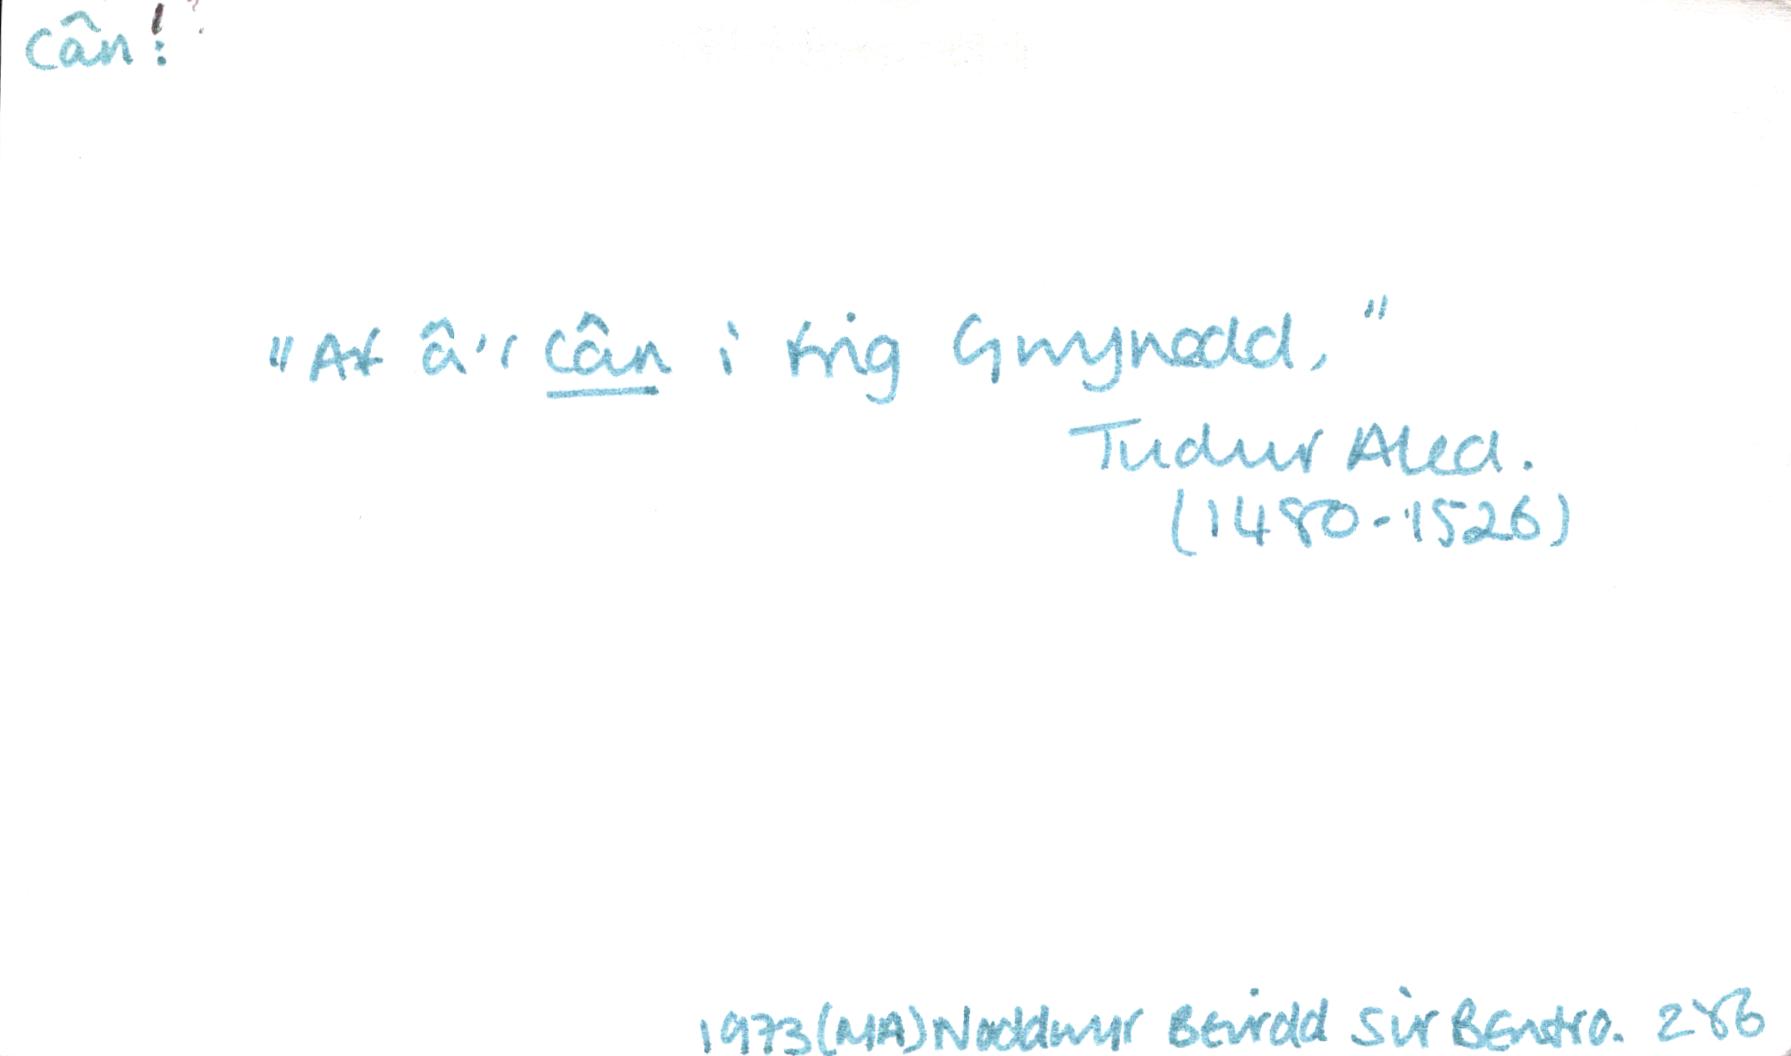 Cân:
"Af â'r cân i frig Gwynedd,"
Tudur Aled.
(1480-1526)
1973 (MA) Noddwyr Beirdd Sir Benfro. 286